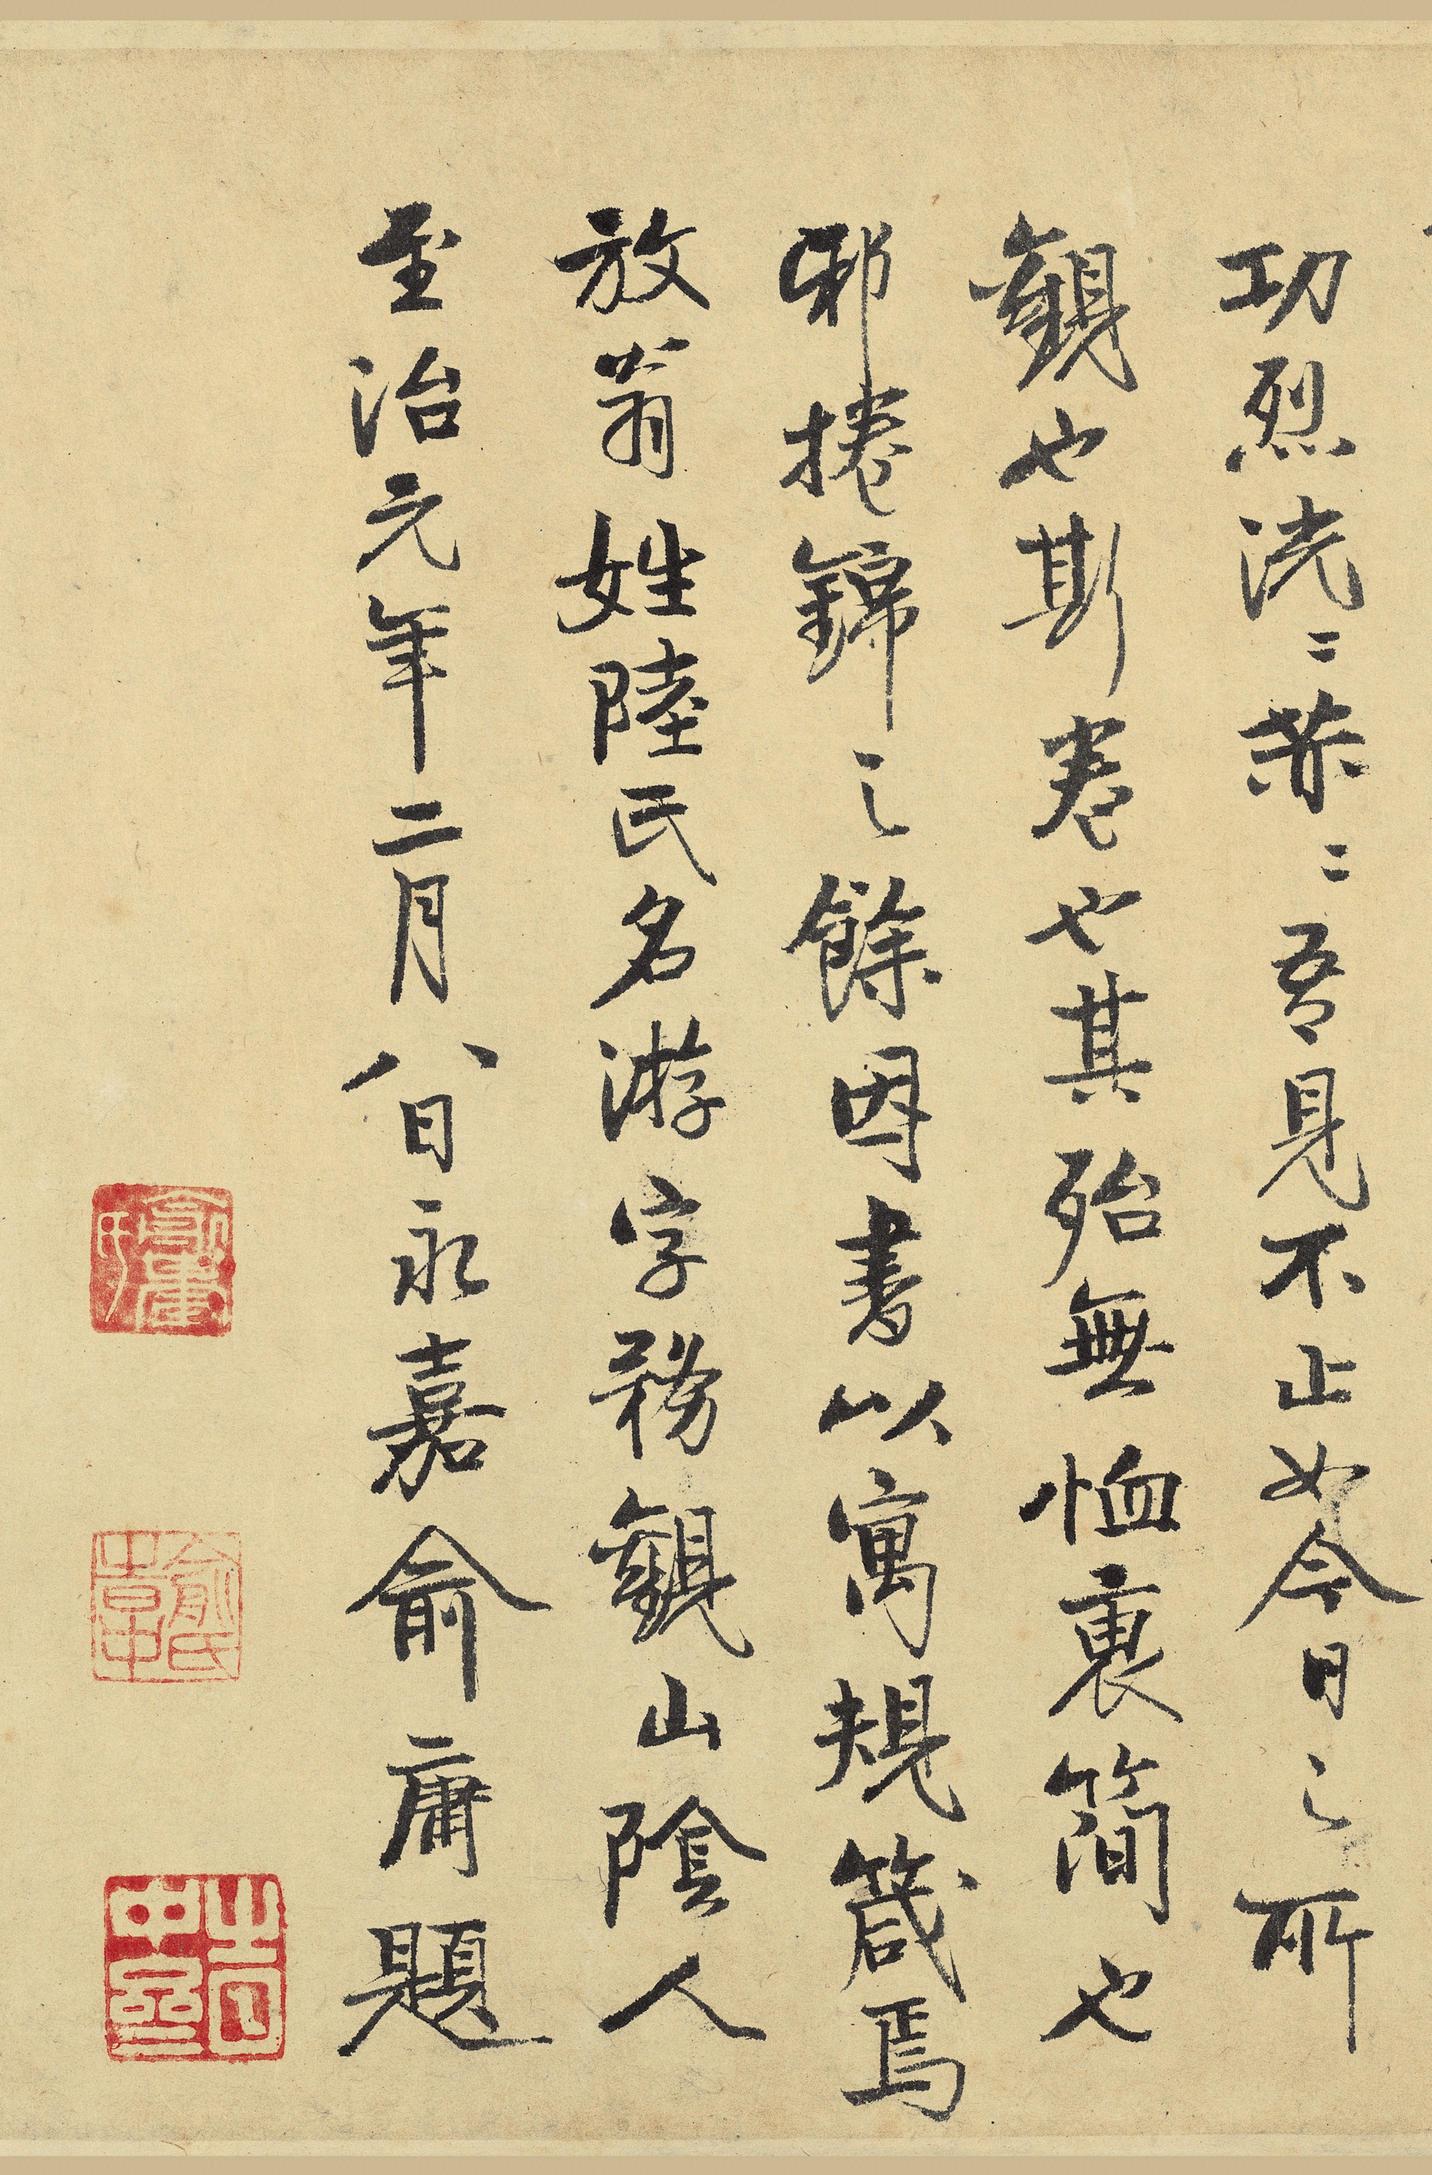 功烈洸〻赫〻吾見不止如今日之所
觀也斯卷也其殆無恤裏簡也
邪捲錦之餘因書以寓規箴焉
放翁姓陸氏名游字務觀山陰人
至治元年二月八日永嘉俞庸題
俞庸
俞氏